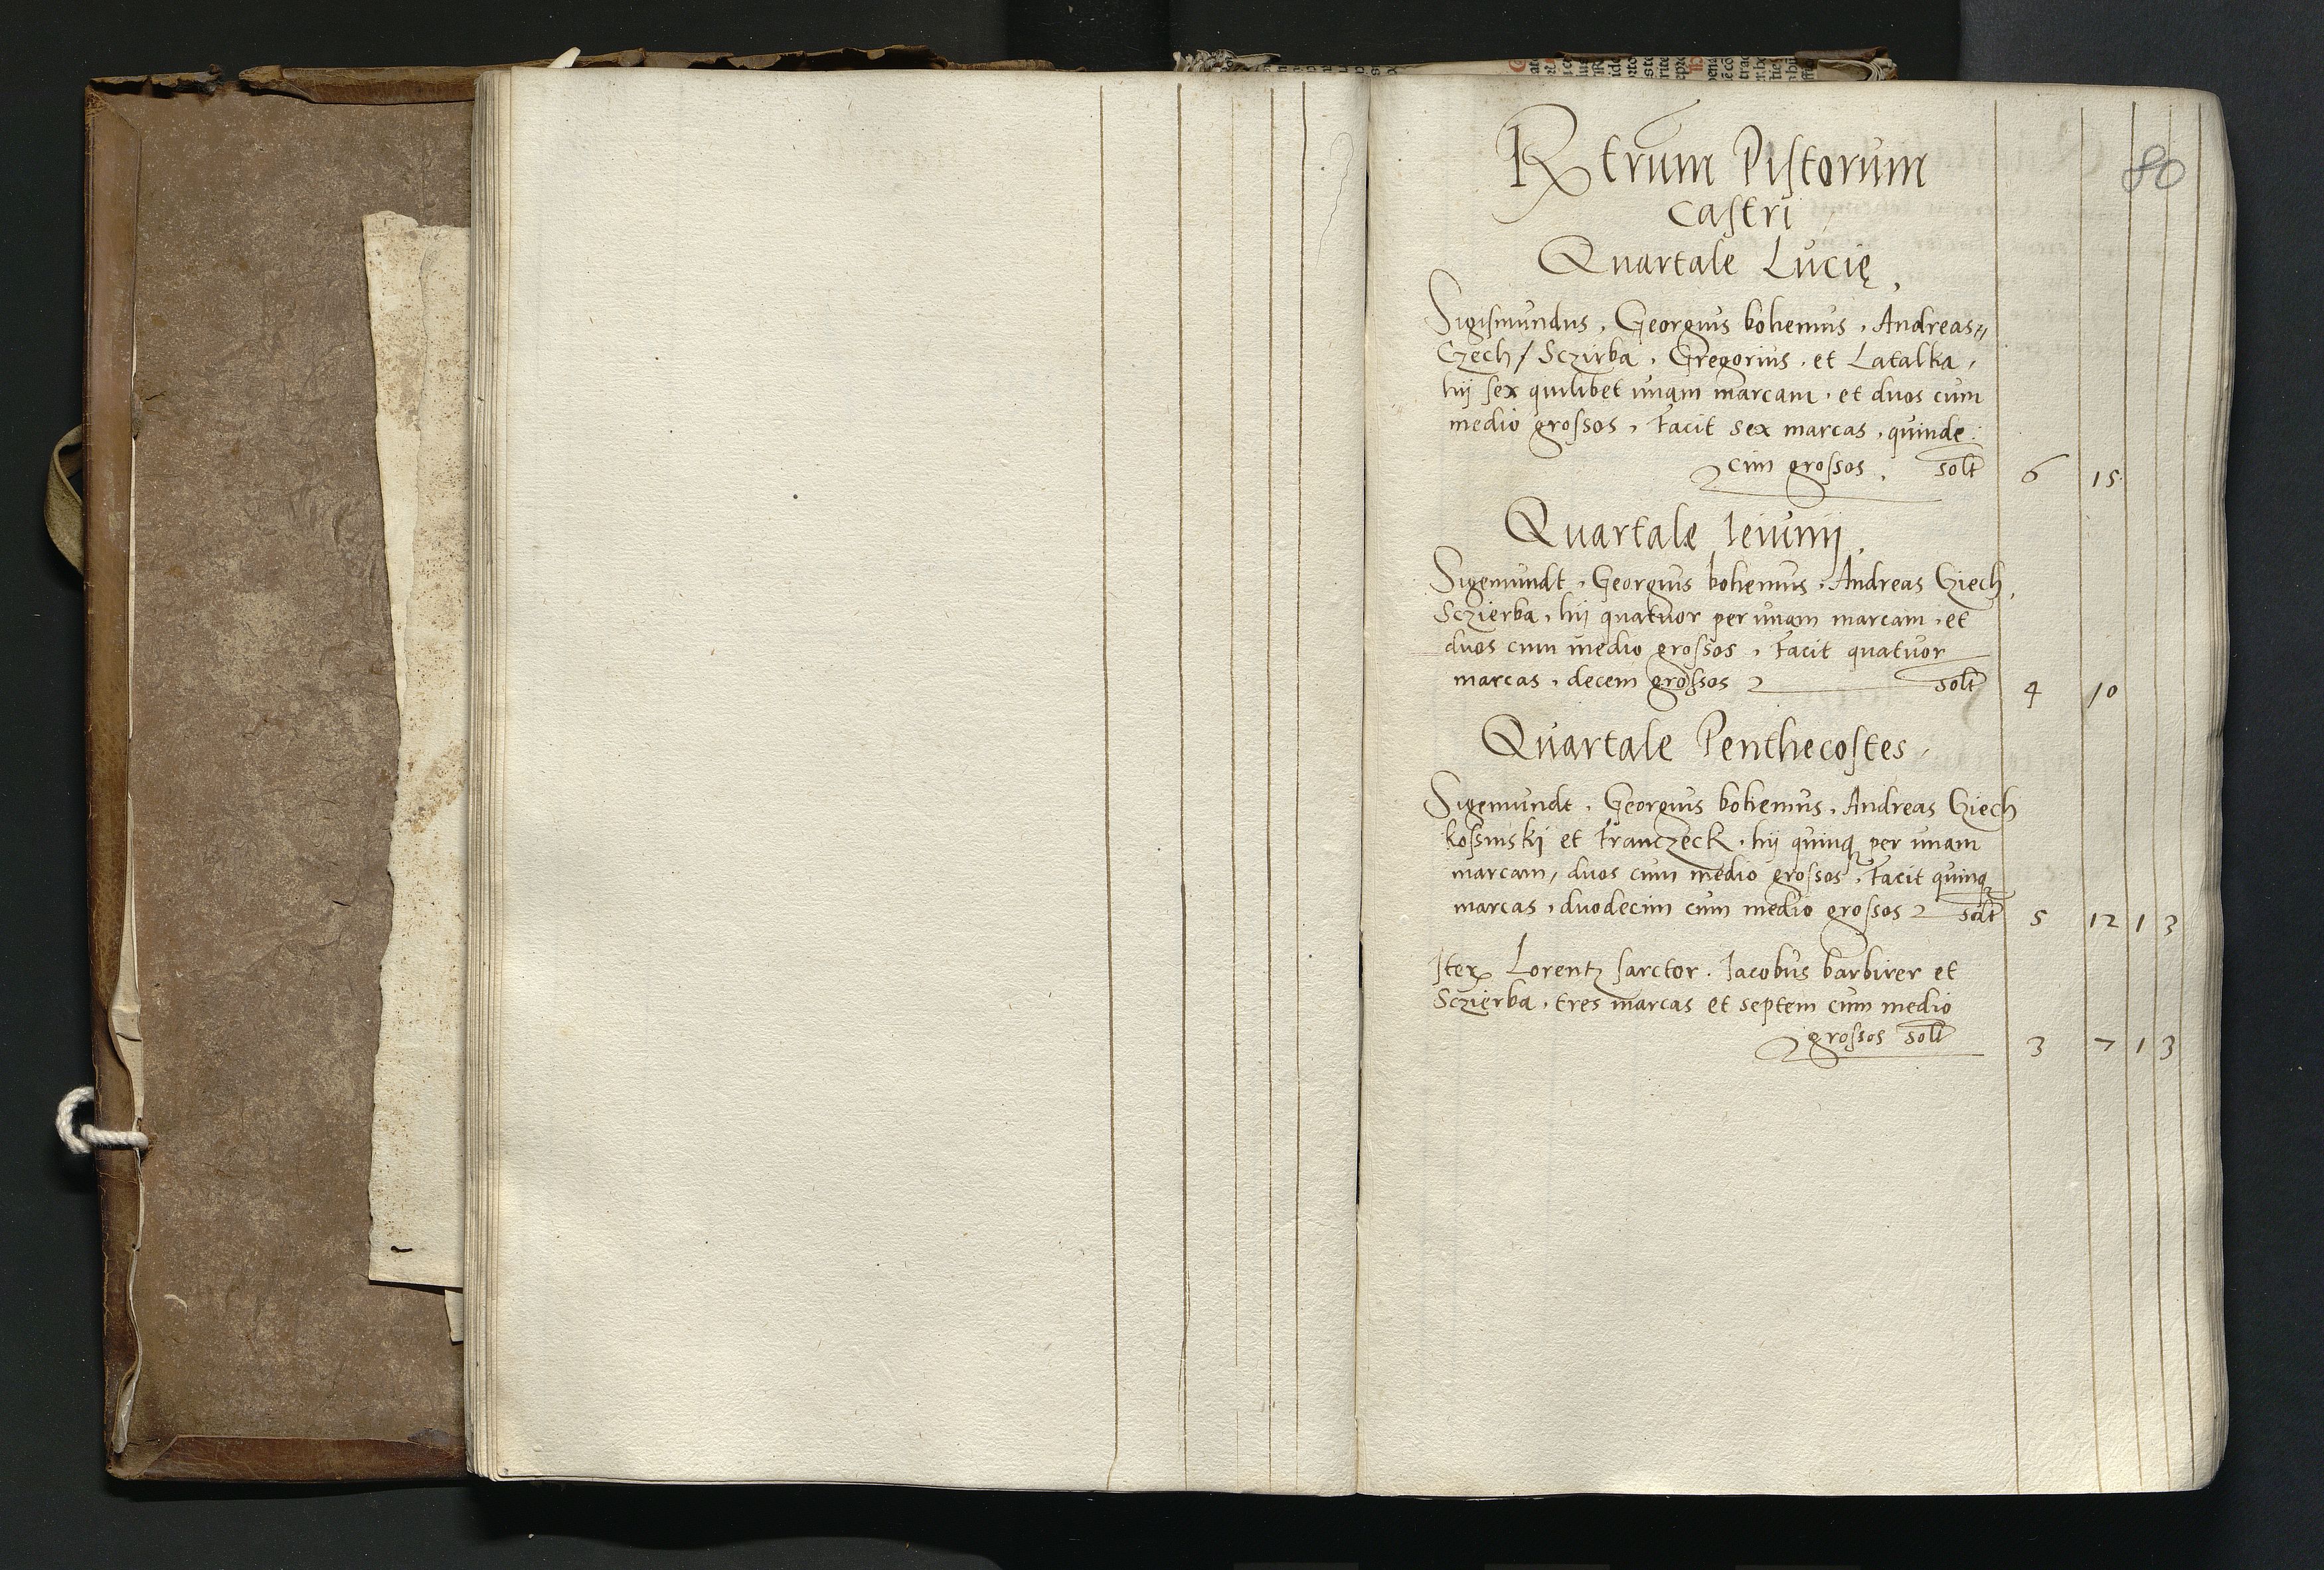 80
Rtrum Pistorum
Castri
Quartale Lucię
Sigismundus, Georgius bohemus, Andreas
Czech / Sczirba, Gregorius, et Latalka,
hij sex quilibet unam marcam, et duos cum
medio grossos, Facit sex marcas, quinde:
cim grossos, solt 6 15
Quartale Ieiunij
Sigemundt, Georgius bohemus, Andreas Cziech,
Sczierba, hij quatuor per unam marcam, et
duos cum medio grossos, Facit quatuor
marcas, decem grossos solt 4 10
Quartale Penthecostes,
Sigemundt, Georgius bohemus, Andreas Cziech
kossinskij et Franczeck, hij quinq per unam
marcam, duos cum medio grossos, Facit quinq
marcas, duodecim cum medio grossos solt 5 12 1 3
Item Lorentz sarctor, Iacobus barbirer et
Sczierba, tres marcas et septem cum medio
grossos solt 3 7 1 3